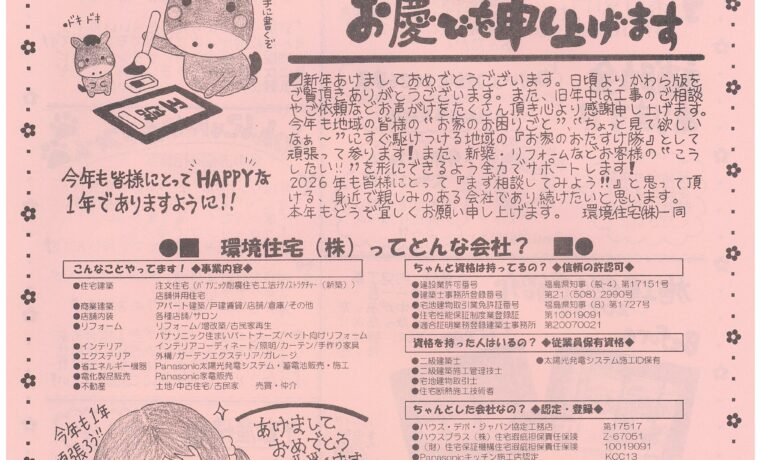 ドキドキ
手に書くぞ
お慶びを申し上げます
新年あけましておめでとうございます。日頃よりかわら版を
ご覧頂きありがとうございます。また、旧年中は工事のご相談
やご依頼などお声がけをたくさん頂き心より感謝申し上げます。
今年も地域の皆様の“お家のお困りごと”、“ちょっと見て欲しい
なぁ～”にすぐ駆けつける地域の『お家のおたすけ隊』として
頑張って参ります!また、新築・リフォームなどお客様の“こう
したい!!”を形にできるよう全力でサポートします!
2026年も皆様にとって『まず相談してみよう!!』と思って頂
ける、身近で親しみのある会社であり続けたいと思います。
本年もどうぞ宜しくお願い申し上げます。 環境住宅(株)一同
今年も皆様にとってHAPPYな
1年でありますように!!
●■ 環境住宅(株)ってどんな会社? ■●
こんなことやってます! ◆事業内容◆
●住宅建築 注文住宅(パナソニック耐震住宅工法テクノストラクチャー(新築))
店舗併用住宅
●商業建築 アパート建築/戸建賃貸/店舗/倉庫/その他
●店舗内装 各種店舗/サロン
●リフォーム リフォーム/増改築/古民家再生
パナソニック住まいパートナーズ/ペット向けリフォーム
●インテリア インテリアコーディネート/照明/カーテン/手作り家具
●エクステリア 外構/ガーデンエクステリア/ガレージ
●省エネルギー機器 Panasonic太陽光発電システム・蓄電池販売・施工
●電化製品販売 Panasonic家電販売
●不動産 土地/中古住宅/古民家 売買・仲介
ちゃんと資格は持ってるの? ◆信頼の許認可◆
●建設業許可番号 福島県知事(般-4)第17151号
●建築士事務所登録番号 第21(508)2990号
●宅地建物取引業免許証番号 福島県知事(8)第1727号
●住宅性能保証制度業登録証 第10019091
●適合証明業務登録建築士事務所 第20070021
資格を持った人はいるの? ◆従業員保有資格◆
●二級建築士 ●太陽光発電システム施工ID保有
●二級建築施工管理技士
●宅地建物取引士
●住宅断熱施工技術者
ちゃんとした会社なの? ◆認定・登録◆
●ハウス・デポ・ジャパン協定工務店 第17517
●ハウスプラス(株)住宅瑕疵担保責任保険 Z-67051
●(財)住宅保証機構住宅瑕疵担保責任保険 10019091
●Panasonicキッチン施工店認定 KCC13
今年も1年
頑張るぞ!!
あけまして
おめでとう